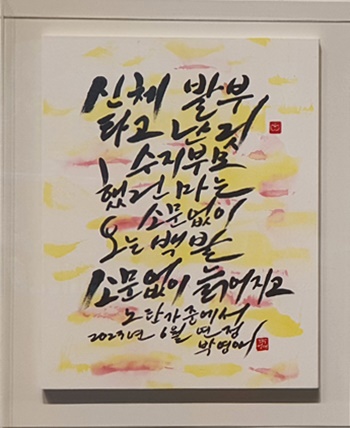 신체 발부
타고 난 것
수지부모
했건마는
소문없이
오는 백발
소문없이 늙어지고
노탄가 중에서
2023년 6월 연정
박영애